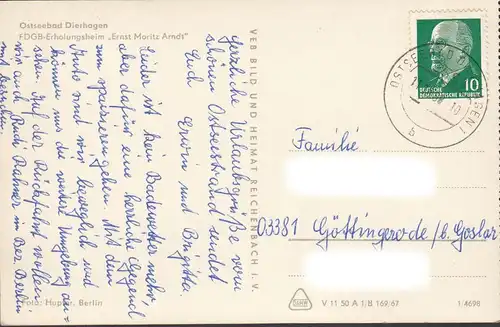 Ostseebad Dierhagen
FDGB-Erholungsheim „Ernst Moritz Arndt"
Herzliche Urlaubsgrüße vom
schönen Ostseestrand sendet
Euch Erwin und Brigitta.
Leider ist kein Badewetter mehr,
aber dafür eine herrliche Gegend
zum spazieren gehen. Mit dem
Auto sind wir beweglich und
können uns die weitere Umgebung an-
sehen. Auf der Rückfahrt wollen
wir auch Rudi in Bln
mit besuchen.
Foto: Berlin
VEB BILD UND HEIMAT REICHENBACH I. V.
OSTSEEBAD
b
10
DEUTSCHE
DEMOKRATISCHE REPUBLIK
Familie
03381 Göttingerode/b. Goslar
V 11 50 A 1/B 169/67
1/4698